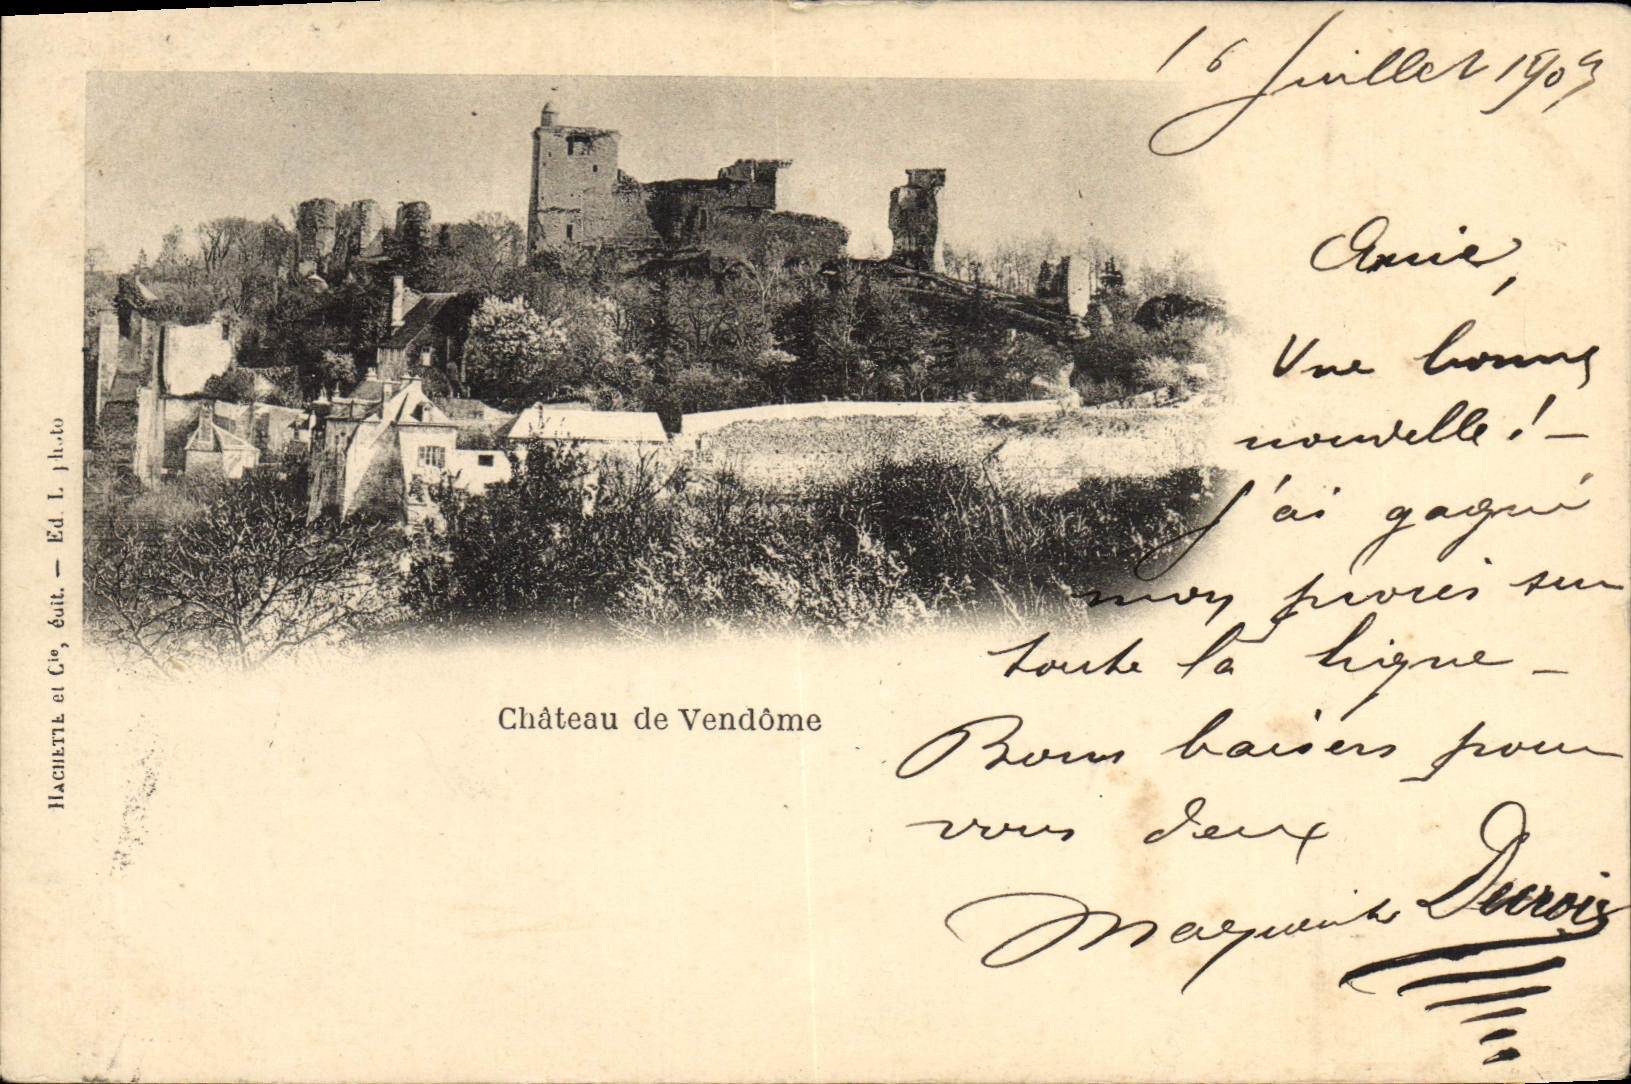 16 Juillet 1903
Amie,
Une bonne
nouvelle ! —
J'ai gagné
mon procès sur
toute la ligne —
Bons baisers pour
vous deux
Marguerite
Château de Vendôme
HACHETTE et Cie, édit. — Ed. L photo